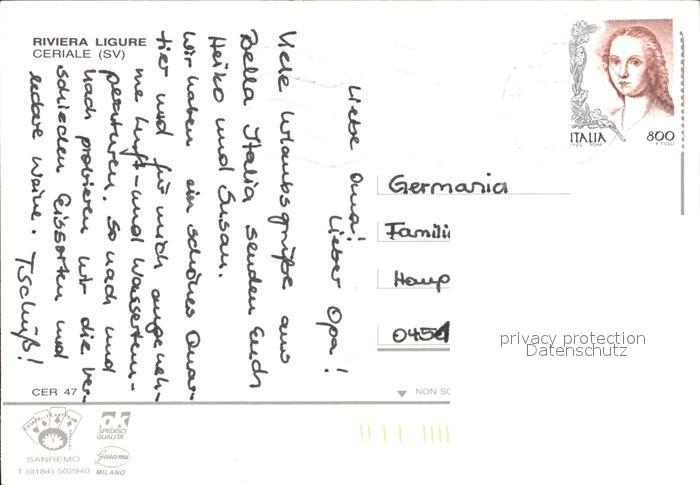 RIVIERA LIGURE
CERIALE (SV)
Liebe Oma! Lieber Opa!
Viele Urlaubsgrüße aus
Bella Italia senden Euch
Heiko und Susan.
Wir haben ein schönes Quar-
tier und für mich angeneh-
me Luft- und Wassertem-
peraturen. So nach und
nach probieren wir die ver-
schieden Eissorten und
andere Weine. Tschüß!
ITALIA 800
Germania
Famili
Haup
0454
privacy protection
Datenschutz
CER 47
NON SC
SANREMO
T.(0184) 502940
ok
SPEDISCI
QUALITÀ
Garami
MILANO